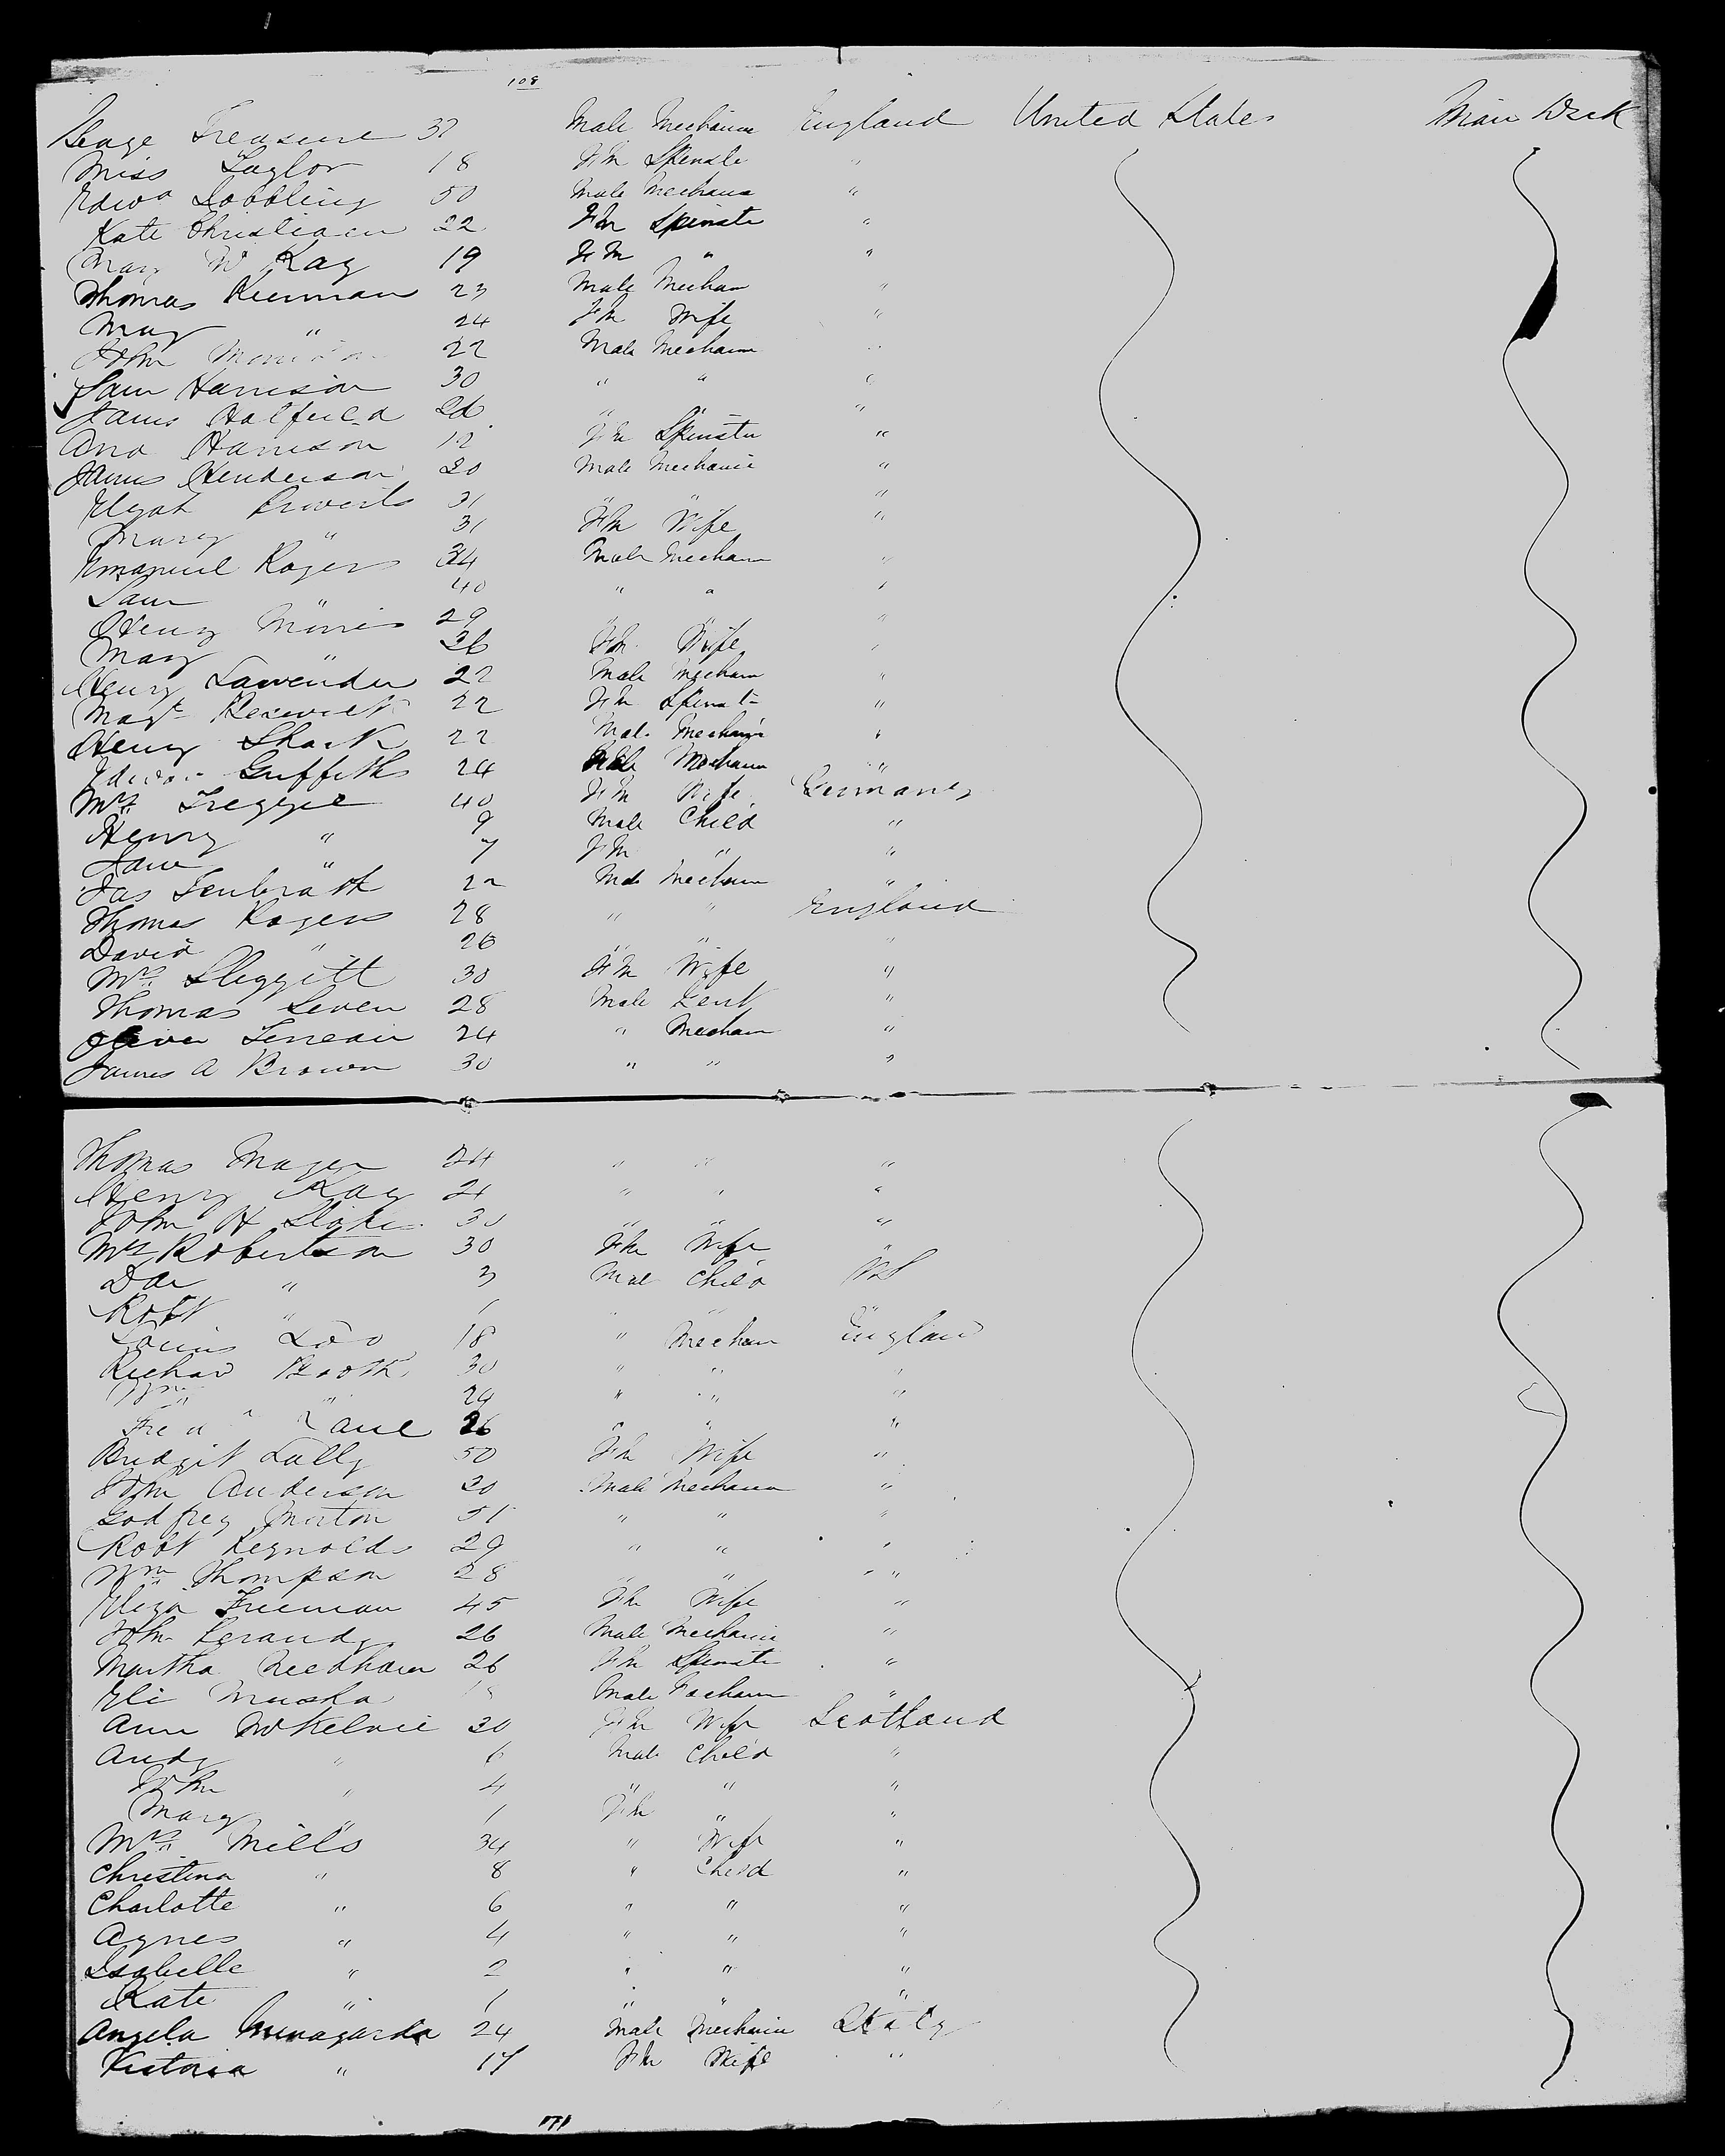 108
Treasure 32 Male Mechanic England United States Main Deck
Miss Taylor 18 Fm Spinste "
Edwd Dobbling 50 Male Mechanic "
Kate Christian 22 Fm Spinste "
Mary Kay 19 Fm " "
Thomas Kiernan 23 Male Mechan "
May " 24 Fm Wife "
John 22 Male Mechani "
Sam Harrison 30 " " "
James Hatfield 26 " " "
Harrison Fm Spinster "
James Henderson 20 Male Mechanic "
Elijah 31 " " "
Mary " 31 Fm Wife "
Emanuel Rogers 34 Male Mechan "
Sam " 40 " " "
Henry Morris 29 " " "
Mary " 36 Fm Wife "
Henry Lavender 22 Male Mechan "
Magt 22 Fm Spinst "
Henry Shark 22 Male Mechani "
Edward Griffith 24 Male Mechani "
Mrs 40 Fm Wife Germany
Henry " 9 Male Child "
Jane " 7 Fm " "
Jas 22 Male Mechan "
Thomas Rogers 28 " " England
David " 26 " " "
Mrs Sleggitt 30 Fm Wife "
Thomas Seven 28 Male Gent "
24 " Mechan "
James A Brown 30 " " "
Thomas Mager 24 " " "
Henry Kay 21 " " "
John H 30 " " "
Mrs Robertson 30 Fm Wife "
" 3 Mal Child US
Robt " 1 " " "
Louis 18 " Mechan Englan
Richard Booth 30 " " "
Wm " 29 " " "
Fred 26 " " "
Bridgit Lally 50 Fm Wife "
John Anderson 30 Male Mechani "
Godfrey Morton 51 " " "
Robt Reynolds 29 " " "
Wm Thompson 28 " " "
Eliza Freeman 45 Fm Wife "
John 26 Male Mechanic "
Martha Needham 26 Fm Spinste "
Eli Male Mechani "
Ann McKelvie 30 Fm Wife Scotland
Andy " 6 Male Child "
John " 4 " " "
Mary " 1 Fm " "
Mrs Mills 34 " Wife "
Christina " 8 " Child "
Charlotte " 6 " " "
Agnes " 4 " " "
Isabelle " 2 " " "
Kate " 1 " " "
Angela 24 Male Mechanic Italy
Victoria " 17 Fm Wife "